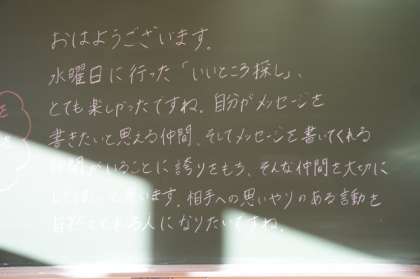 おはようございます。
水曜日に行った「いいところ探し」、
とても楽しかったですね。自分がメッセージを
書きたいと思える仲間、そしてメッセージを書いてくれる
仲間がいることに誇りをもち、そんな仲間を大切に
してほしいと思います。相手への思いやりのある言動を
人になりたいですね。